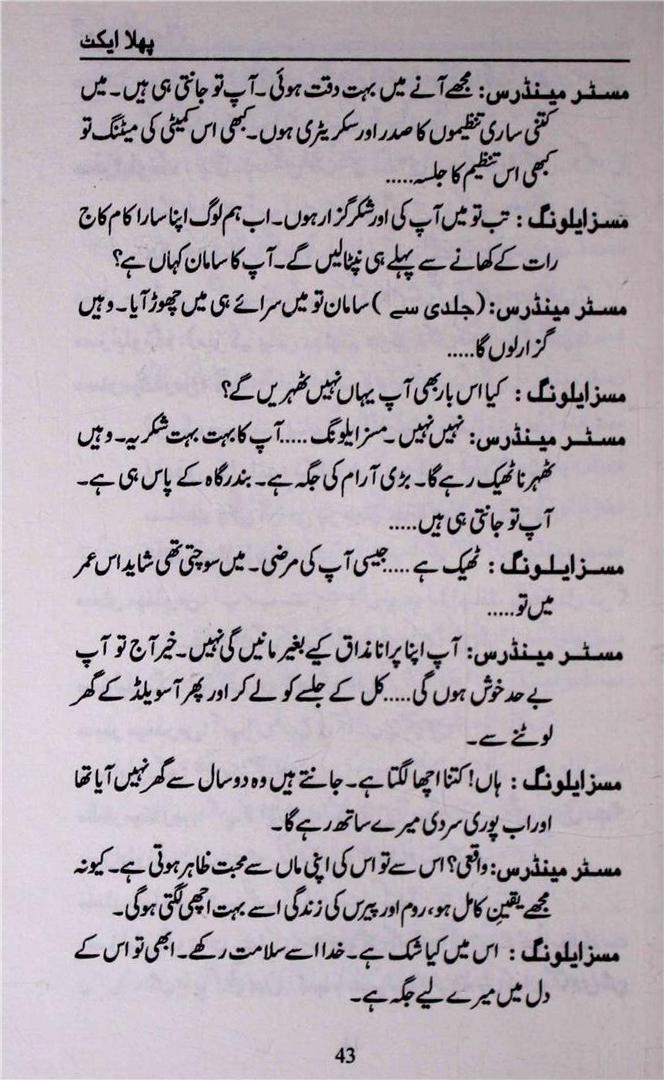 پہلا ایکٹ
مسٹر مینڈرس: مجھے آنے میں بہت دقت ہوئی ۔ آپ تو جانتی ہی ہیں ۔ میں
کتنی ساری تنظیموں کا صدر اور سکریٹری ہوں۔ کبھی اس کمیٹی کی میٹنگ تو
کبھی اس تنظیم کا جلسہ.....
مسز ایلونگ : تب تو میں آپ کی اور شکر گزار ہوں۔ اب ہم لوگ اپنا سارا کام کاج
رات کے کھانے سے پہلے ہی نپٹالیں گے۔ آپ کا سامان کہاں ہے؟
مسٹر مینڈرس: (جلدی سے ) سامان تو میں سرائے ہی میں چھوڑ آیا۔ وہیں
گزار لوں گا.....
مسز ایلونگ : کیا اس بار بھی آپ یہاں نہیں ٹھہریں گے؟
مسٹر مینڈرس: نہیں نہیں ۔ مسز ایلونگ ..... آپ کا بہت بہت شکریہ ۔ وہیں
ٹھہرنا ٹھیک رہے گا۔ بڑی آرام کی جگہ ہے۔ بندرگاہ کے پاس ہی ہے۔
آپ تو جانتی ہی ہیں.....
مسز ایلونگ : ٹھیک ہے ..... جیسی آپ کی مرضی ۔ میں سوچتی تھی شاید اس عمر
میں تو.....
مسٹر مینڈرس: آپ اپنا پرانا مذاق کیے بغیر مانیں گی نہیں۔ خیر آج تو آپ
بے حد خوش ہوں گی..... کل کے جلسے کو لے کر اور پھر آسویلڈ کے گھر
لوٹنے سے۔
مسز ایلونگ : ہاں! کتنا اچھا لگتا ہے۔ جانتے ہیں وہ دو سال سے گھر نہیں آیا تھا
اور اب پوری سردی میرے ساتھ رہے گا۔
مسٹر مینڈرس: واقعی؟ اس سے تو اس کی اپنی ماں سے محبت ظاہر ہوتی ہے۔ کیونہ
مجھے یقینِ کامل ہو، روم اور پیرس کی زندگی اسے بہت اچھی لگتی ہوگی۔
مسز ایلونگ : اس میں کیا شک ہے۔ خدا اسے سلامت رکھے۔ ابھی تو اس کے
دل میں میرے لیے جگہ ہے۔
43